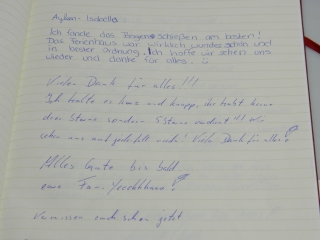 Aylin - Isabella :
Ich fande das Ponys schleplen am besten!
Das Ferienhaus war wirklich wunderschön und
in bester Ordnung. Ich hoffe wir sehen uns
wieder und danke für alles. ☺
Vielen Dank für alles!!!
Ich halte es kurz und knapp, ihr habt keine
drei Sterne sondern 5 Sterne verdient!!!
uns und jederzeit wieder! Vielen Dank für alles!
Alles Gute bis bald
eure Fam.
Vermissen euch schon jetzt